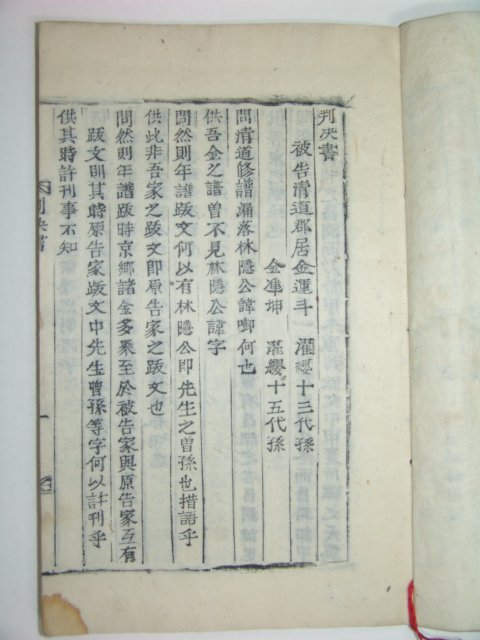 判決書
被告清道郡居金運斗 濯纓十三代孫
金準坤 濯纓十五代孫
問清道修譜漏落林隱公諱啣何也
供吾金之譜曽不見林隱公諱字
問然則年譜跋文何以有林隱公即先生之曽孫也措語乎
供此非吾家之跋文即原告家之跋文也
問然則年譜跋時京鄉諸金多乘至於被告家與原告家互有
跋文則其時原告家跋文中先生曽孫等字何以許刊乎
供其時許刊事不知
判決書
一